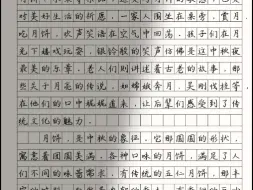 对美好生活的祈愿，一家人围坐在桌旁，赏月、
吃月饼，欢声笑语在空气中回荡。孩子们在月
光下嬉戏玩耍，银铃般的笑声仿佛是这中秋夜
最美的乐章。老人们则讲述着古老的故事，那
些关于月亮的传说，如嫦娥奔月、吴刚伐桂等，
在他们的口中娓娓道来，让后辈们感受到了传
统文化的魅力。
月饼，是中秋的象征。它那圆圆的形状，
寓意着团团美满。各种口味的月饼，满足了人
们不同的味蕾需求。有传统的五仁月饼，那丰